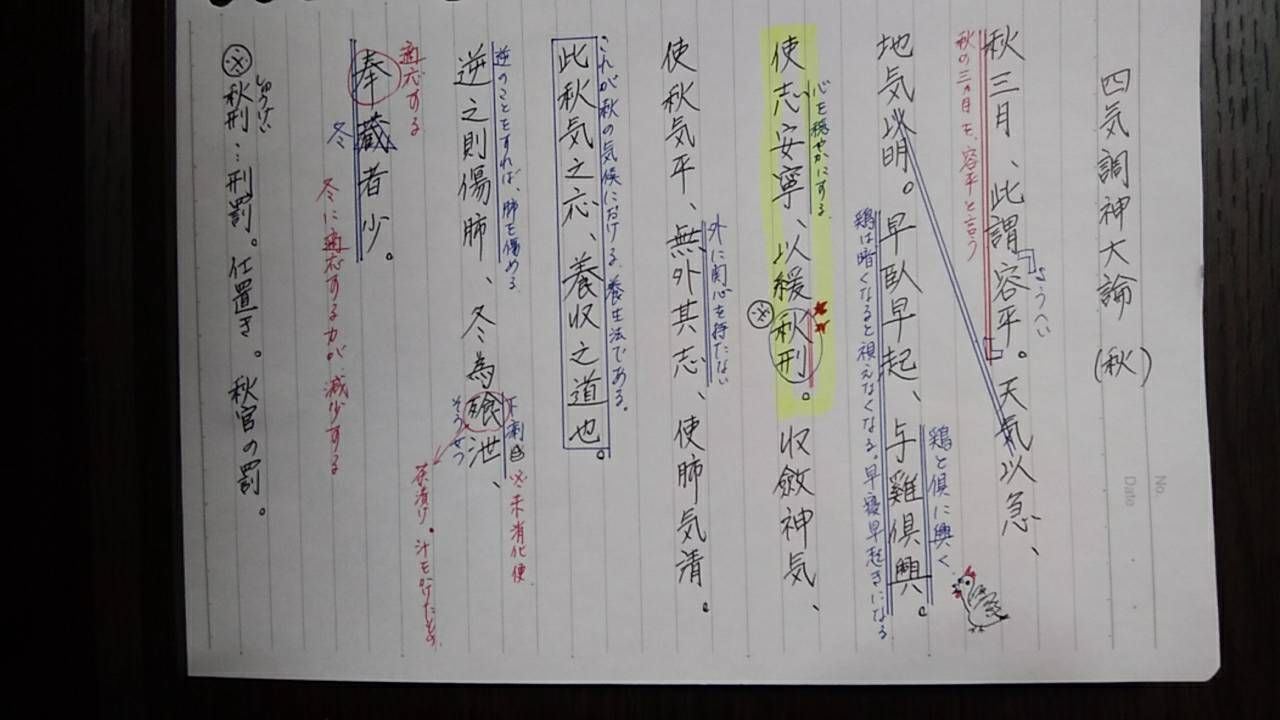 No.
Date
四気調神大論(秋)
ようへい
秋三月、此謂容平。天氣以急、
秋の三ヵ月を、容平と言う
鶏と倶に興く
地気以明。早臥早起、与雞倶興。
鶏は暗くなると視えなくなる。早寝早起きになる
心を穏やかにする
使志安寧、以緩秋刑。収斂神気、
※
外に関心を持たない
使秋気平、無外其志、使肺気清。
これが秋の気候における、養生法である。
此秋気之応、養収之道也。
逆のことをすれば、肺を傷める
※未消化便
逆之則傷肺、冬為飱泄、
そうせつ
茶漬け。汁をかけたもの
適応する
奉蔵者少。
冬
冬に適応する力が、減少する
しゅうけい
※秋刑…刑罰。仕置き。秋官の罰。